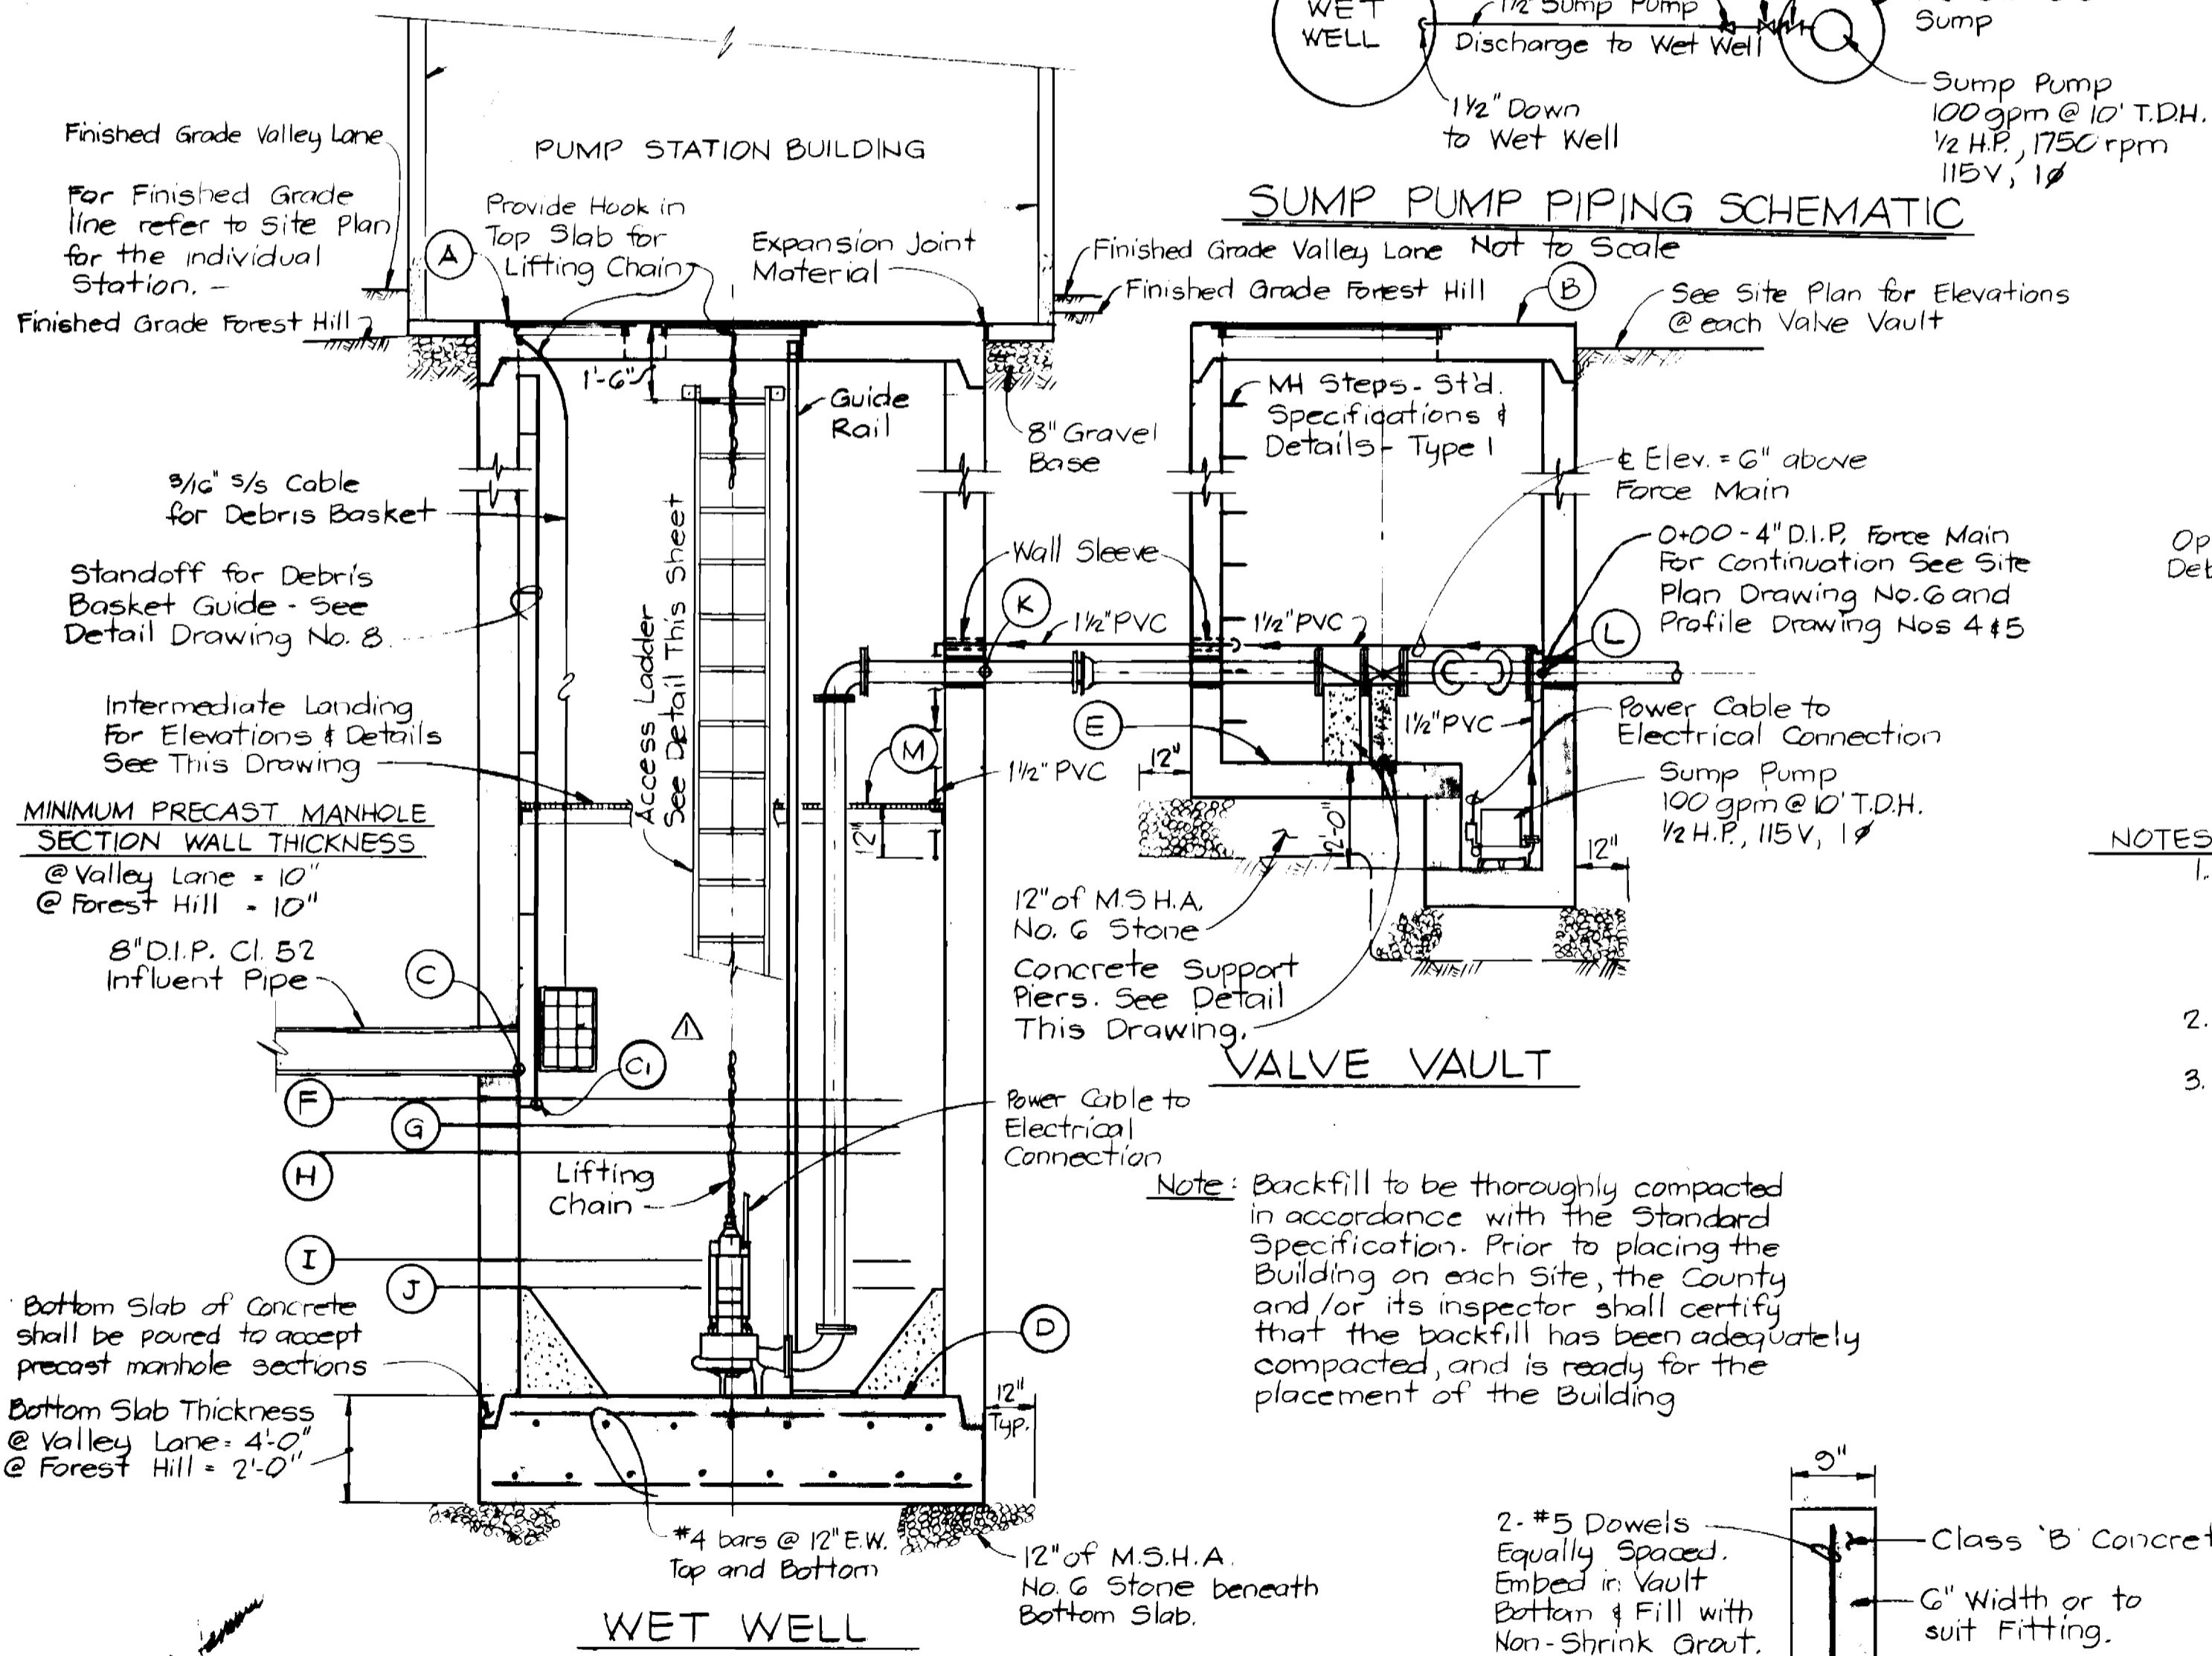 WET
WELL
1½" Sump Pump
Discharge to Wet Well
Sump
Sump Pump
100 gpm @ 10' T.D.H.
½ H.P., 1750 rpm
115V, 1ø
1½" Down
to Wet Well
SUMP PUMP PIPING SCHEMATIC
Not to Scale
Finished Grade Valley Lane
For Finished Grade
line refer to Site Plan
for the individual
Station.
Finished Grade Forest Hill
PUMP STATION BUILDING
A
Provide Hook in
Top Slab for
Lifting Chain
Expansion Joint
Material
Finished Grade Valley Lane
Finished Grade Forest Hill
B
See Site Plan for Elevations
@ each Valve Vault
1'-6"
Guide
Rail
8" Gravel
Base
MH Steps - St'd.
Specifications &
Details - Type 1
℄ Elev. = 6" above
Force Main
3/16" s/s Cable
for Debris Basket
Standoff for Debris
Basket Guide - See
Detail Drawing No. 8.
Access Ladder
See Detail This Sheet
Wall Sleeve
K
1½" PVC
1½" PVC
0+00 - 4" D.I.P. Force Main
For Continuation See Site
Plan Drawing No. 6 and
Profile Drawing Nos 4 & 5
L
Op
Deb
Intermediate Landing
For Elevations & Details
See This Drawing
M
1½" PVC
12"
E
12"
1½" PVC
Power Cable to
Electrical Connection
Sump Pump
100 gpm @ 10' T.D.H.
½ H.P., 115V, 1ø
2'-0"
12"
MINIMUM PRECAST MANHOLE
SECTION WALL THICKNESS
@ Valley Lane = 10"
@ Forest Hill = 10"
8" D.I.P. Cl. 52
Influent Pipe
C
C1
1
12" of M.S.H.A.
No. 6 Stone
Concrete Support
Piers. See Detail
This Drawing.
VALVE VAULT
NOTES
1.
2.
3.
F
G
H
I
J
Lifting
Chain
Power Cable to
Electrical
Connection
D
Note: Backfill to be thoroughly compacted
in accordance with the Standard
Specification. Prior to placing the
Building on each Site, the County
and/or its inspector shall certify
that the backfill has been adequately
compacted, and is ready for the
placement of the Building
Bottom Slab of Concrete
shall be poured to accept
precast manhole sections
Bottom Slab Thickness
@ Valley Lane = 4'-0"
@ Forest Hill = 2'-0"
12"
Typ.
#4 bars @ 12" E.W.
Top and Bottom
12" of M.S.H.A.
No. 6 Stone beneath
Bottom Slab.
WET WELL
9"
2 - #5 Dowels
Equally Spaced.
Embed in Vault
Bottom & Fill with
Non-Shrink Grout.
Class 'B' Concret
6" Width or to
suit Fitting.